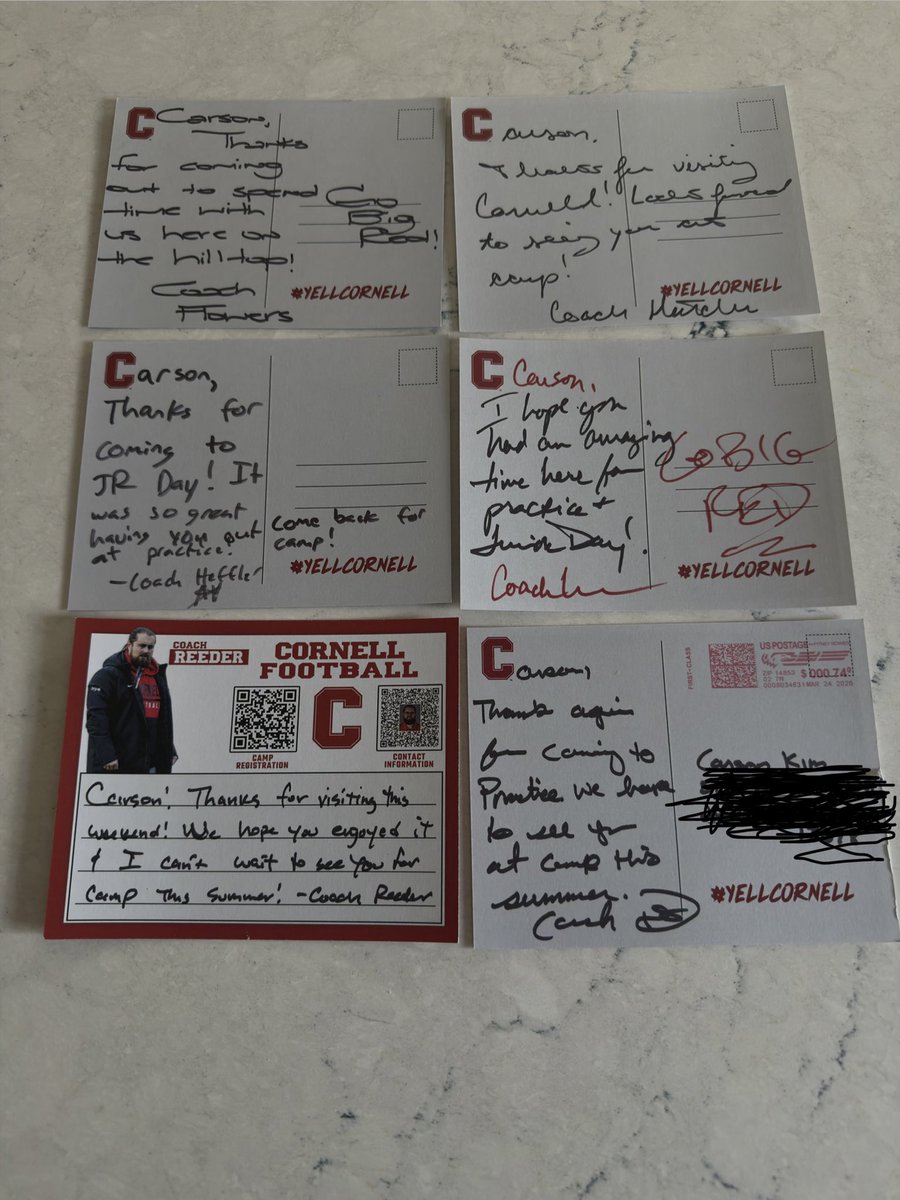 Carson,
Thanks
for coming
out to spend
time with
us here on
the hilltop!
Coach
Flowers
Go
Big
Red!
#YELLCORNELL
Carson,
Thanks for visiting
Cornell! Look forward
to seeing you at
camp!
Coach
#YELLCORNELL
Carson,
Thanks for
coming to
JR Day! It
was so great
having you out
at practice!
-Coach Heffler
Come back for
camp!
#YELLCORNELL
C Carson,
I hope you
had an amazing
time here for
practice +
Junior Day!
Coach
GO BIG
RED
#YELLCORNELL
COACH
REEDER
CORNELL
FOOTBALL
C
CAMP
REGISTRATION
CONTACT
INFORMATION
Carson! Thanks for visiting this
weekend! We hope you enjoyed it
& I can't wait to see you for
Camp This Summer! -Coach Reeder
Carson,
Thanks again
for coming to
Practice we hope
to see you
at camp this
summer.
Coach
FIRST-CLASS
US POSTAGE
ZIP 14853
02 7H
$ 000.74
MAR 24 2026
Carson Kim
#YELLCORNELL